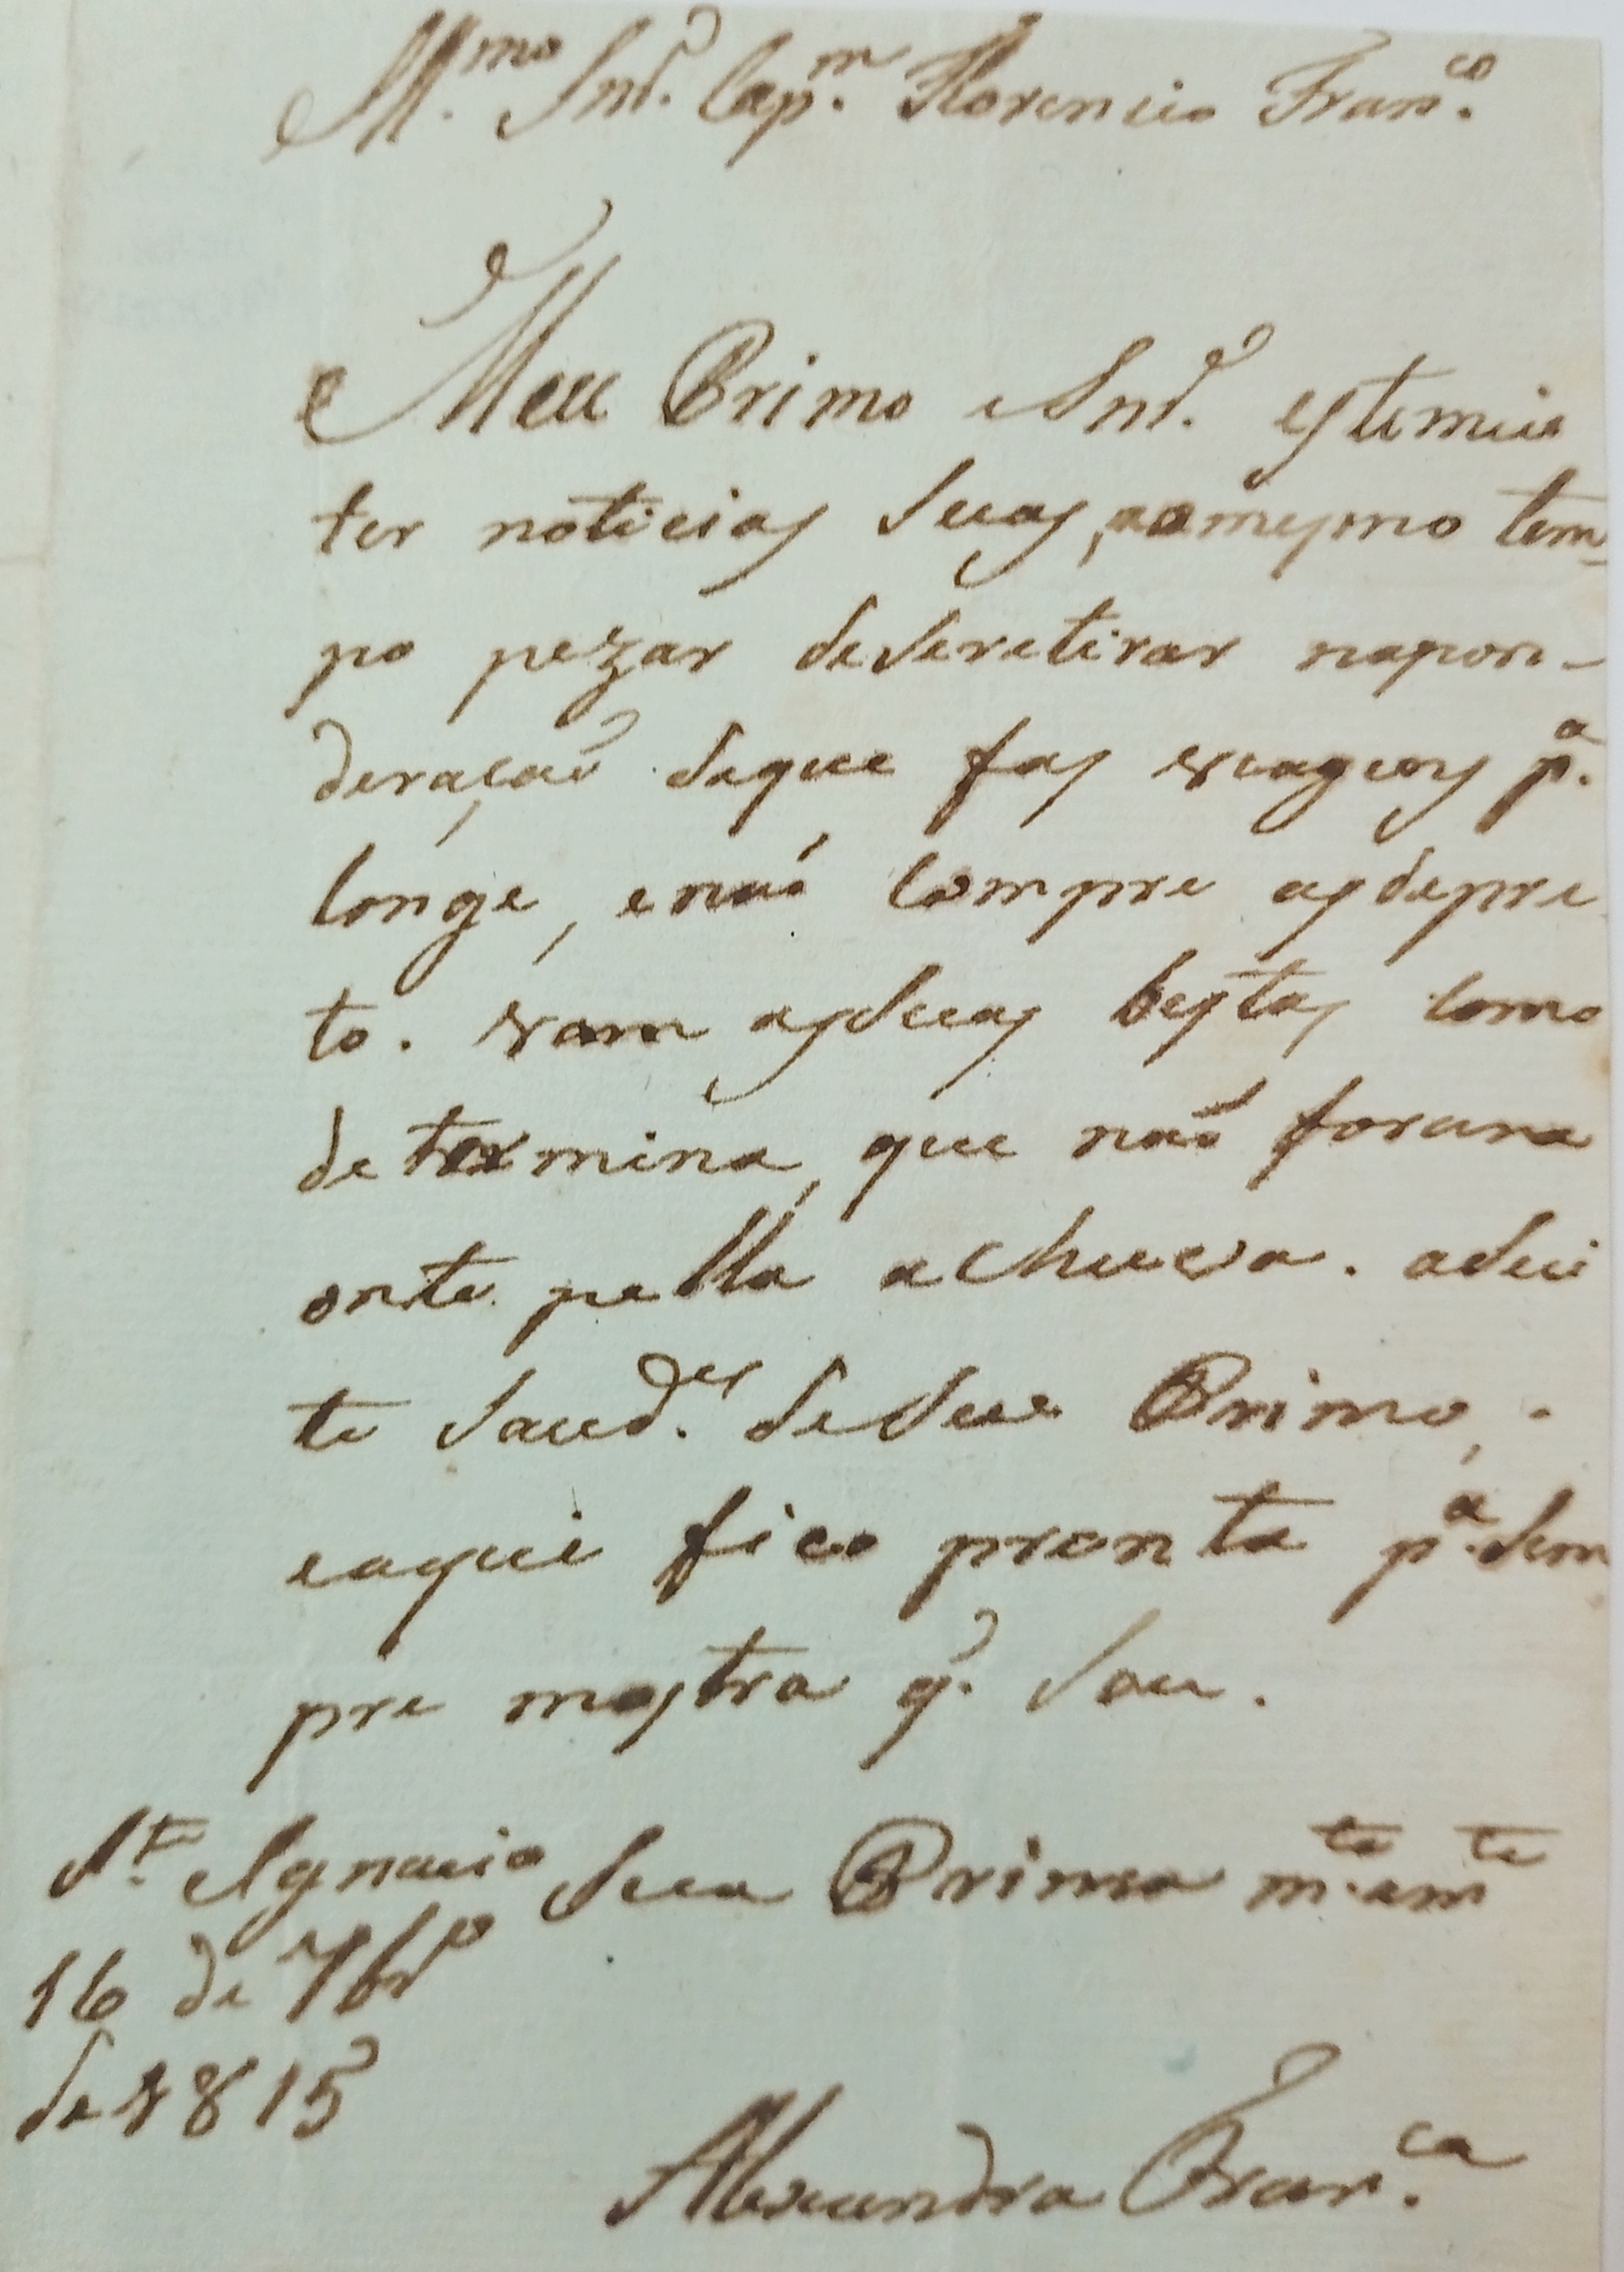 Ill.mo Snr. Cap.m Florencio Fran.co
Meu Primo e Snr. estimei
ter noticias suas, ao mesmo tem-
po pezar de se retirar na pon-
deração de que fas viagens p.a
longe, e não compre as de pre
to. vam as suas bestas como
determina, que não foram
onte pella a chuva. aSei
te saud.es de seu Primo,
e aqui fico pronta p.a sem
pre mostra q. sou.
St.o Ignacio Sua Prima m.to am.te
16 de 7br.o
de 1815
Alexandra Fran.ca